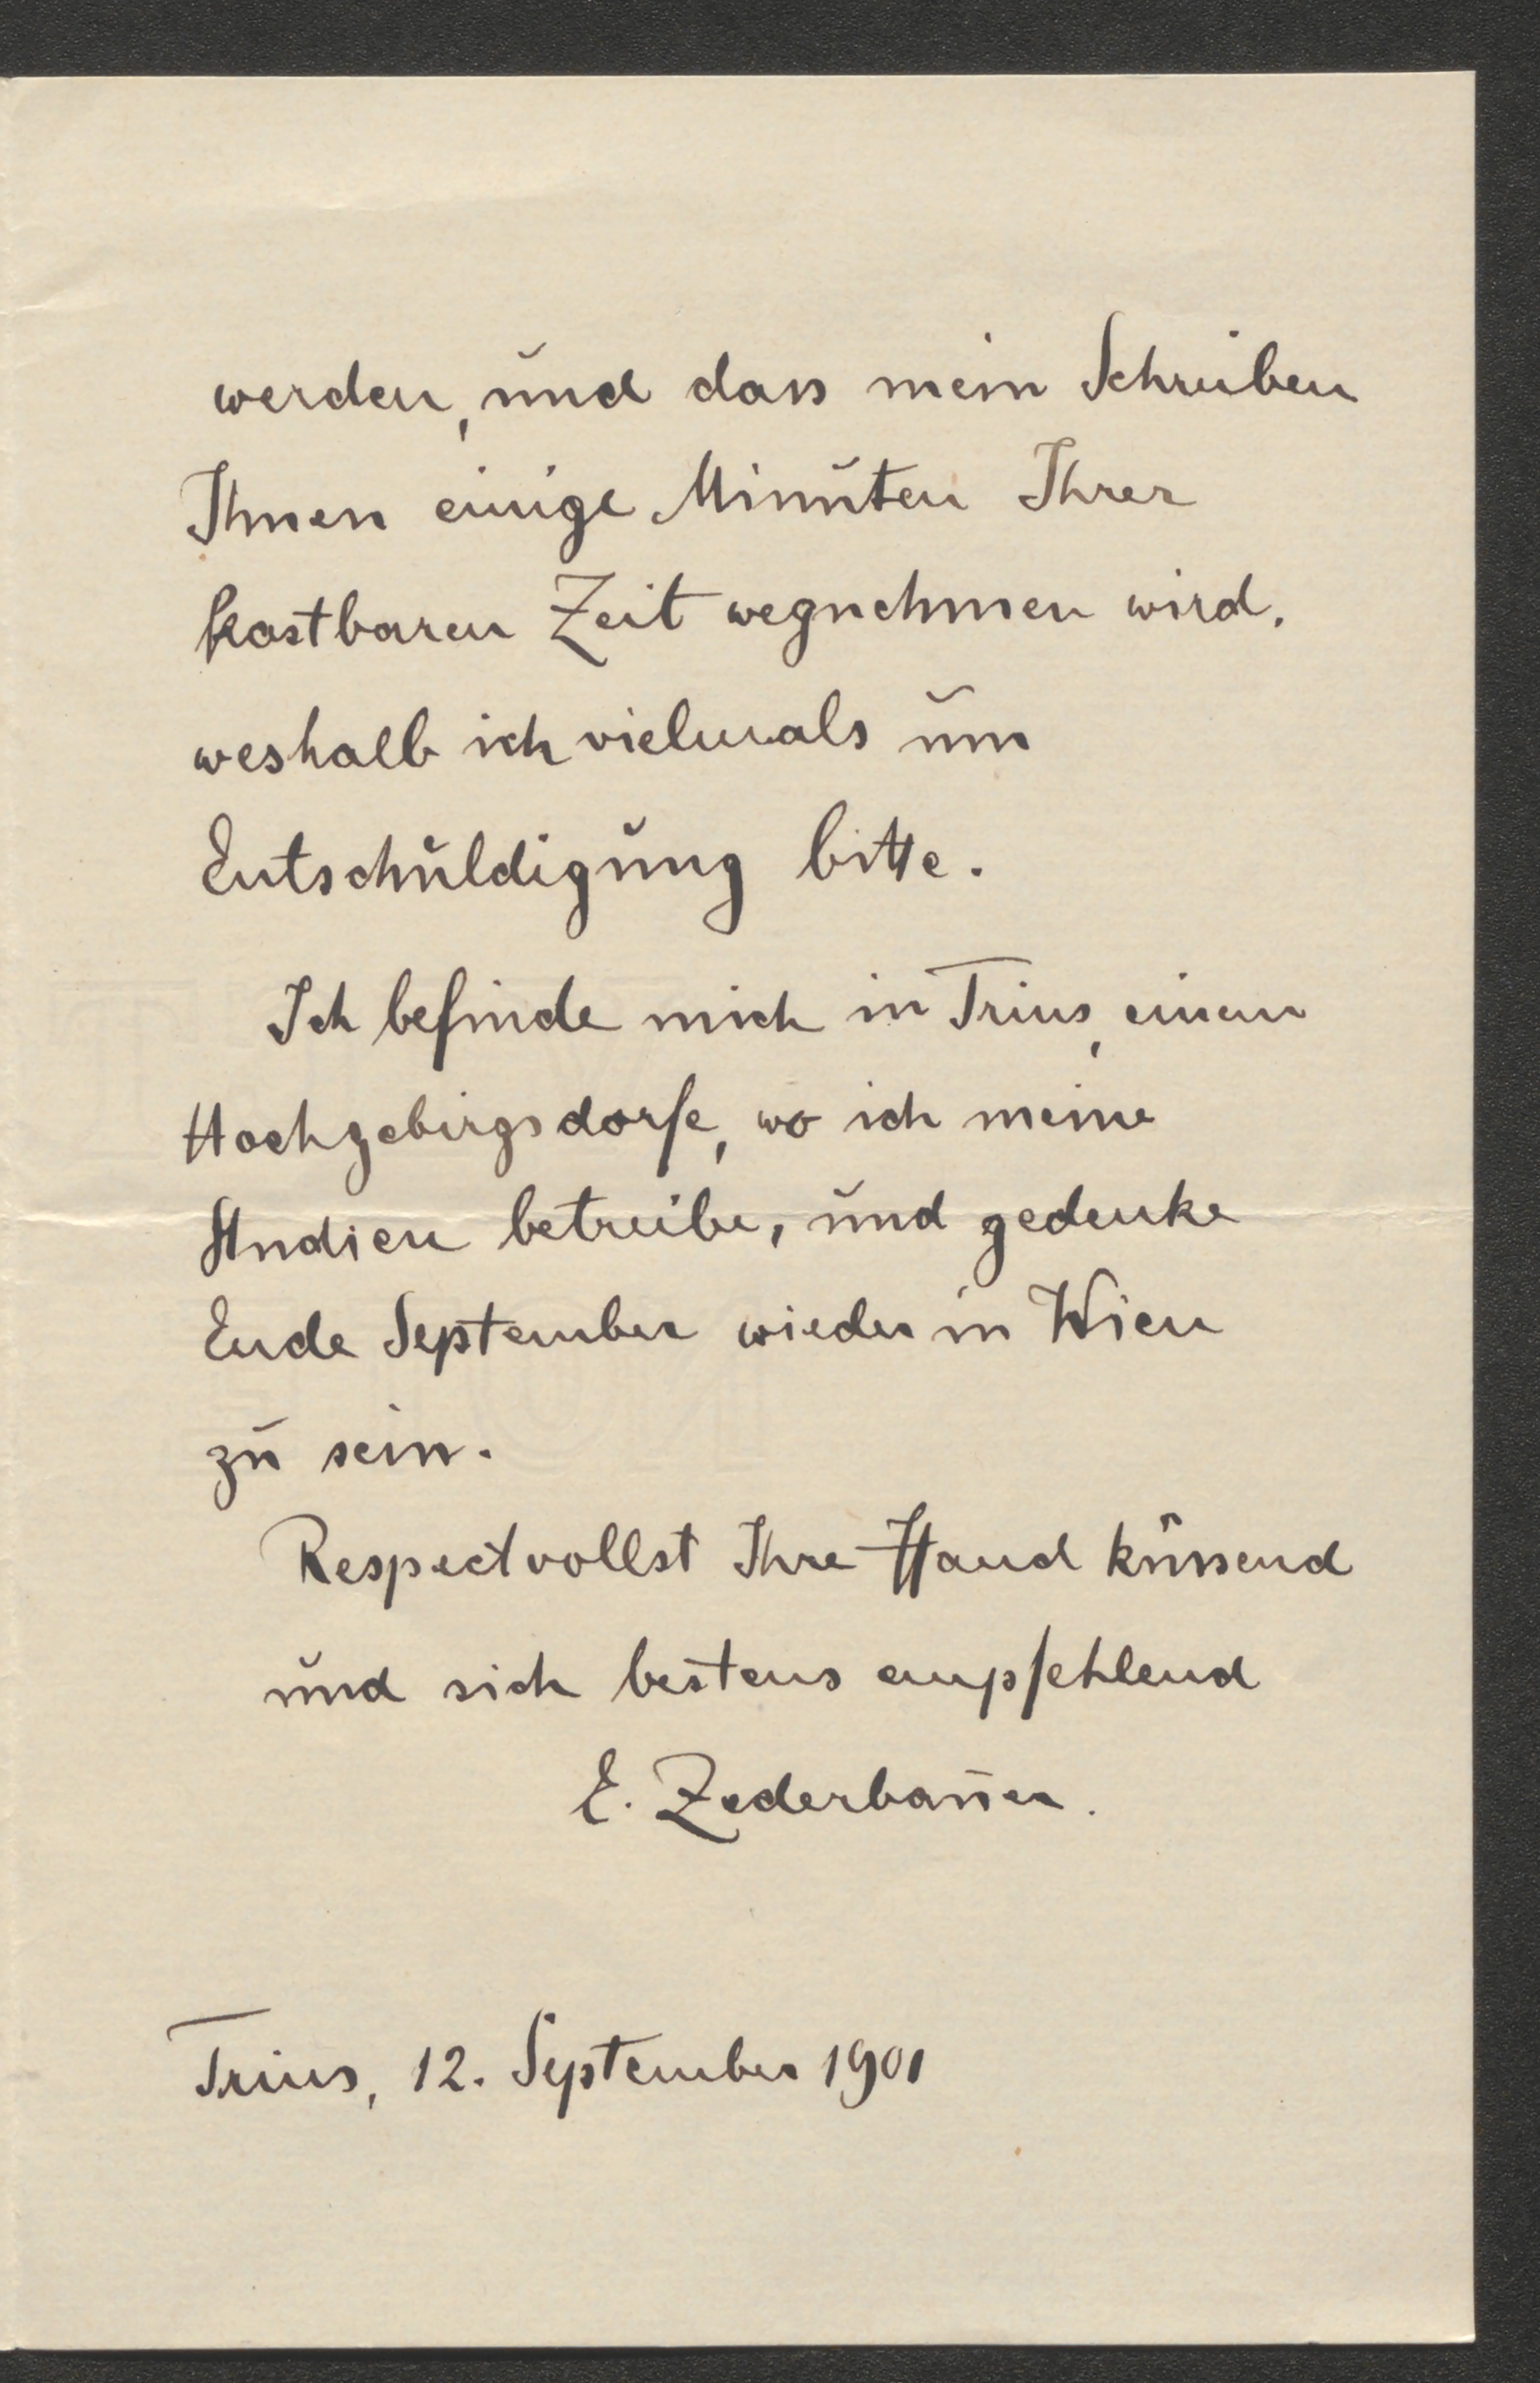 werden, und dass mein Schreiben
Ihnen einige Minuten Ihrer
kostbaren Zeit wegnehmen wird,
weshalb ich vielmals um
Entschuldigung bitte.
Ich befinde mich in Trins, einem
Hochgebirgsdorfe, wo ich meine
Studien betreibe, und gedenke
Ende September wieder in Wien
zu sein.
Respectvollst Ihre Hand küssend
und sich bestens empfehlend
E. Zederbauer.
Trins, 12. September 1901